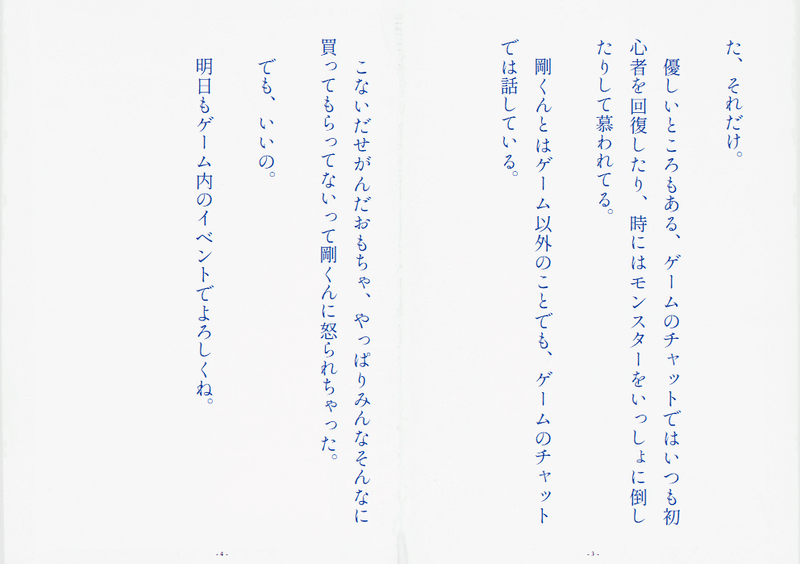 た、それだけ。
優しいところもある、ゲームのチャットではいつも初
心者を回復したり、時にはモンスターをいっしょに倒し
たりして慕われてる。
剛くんとはゲーム以外のことでも、ゲームのチャット
では話している。
- 3 -
こないだせがんだおもちゃ、やっぱりみんなそんなに
買ってもらってないって剛くんに怒られちゃった。
でも、いいの。
明日もゲーム内のイベントでよろしくね。
- 4 -